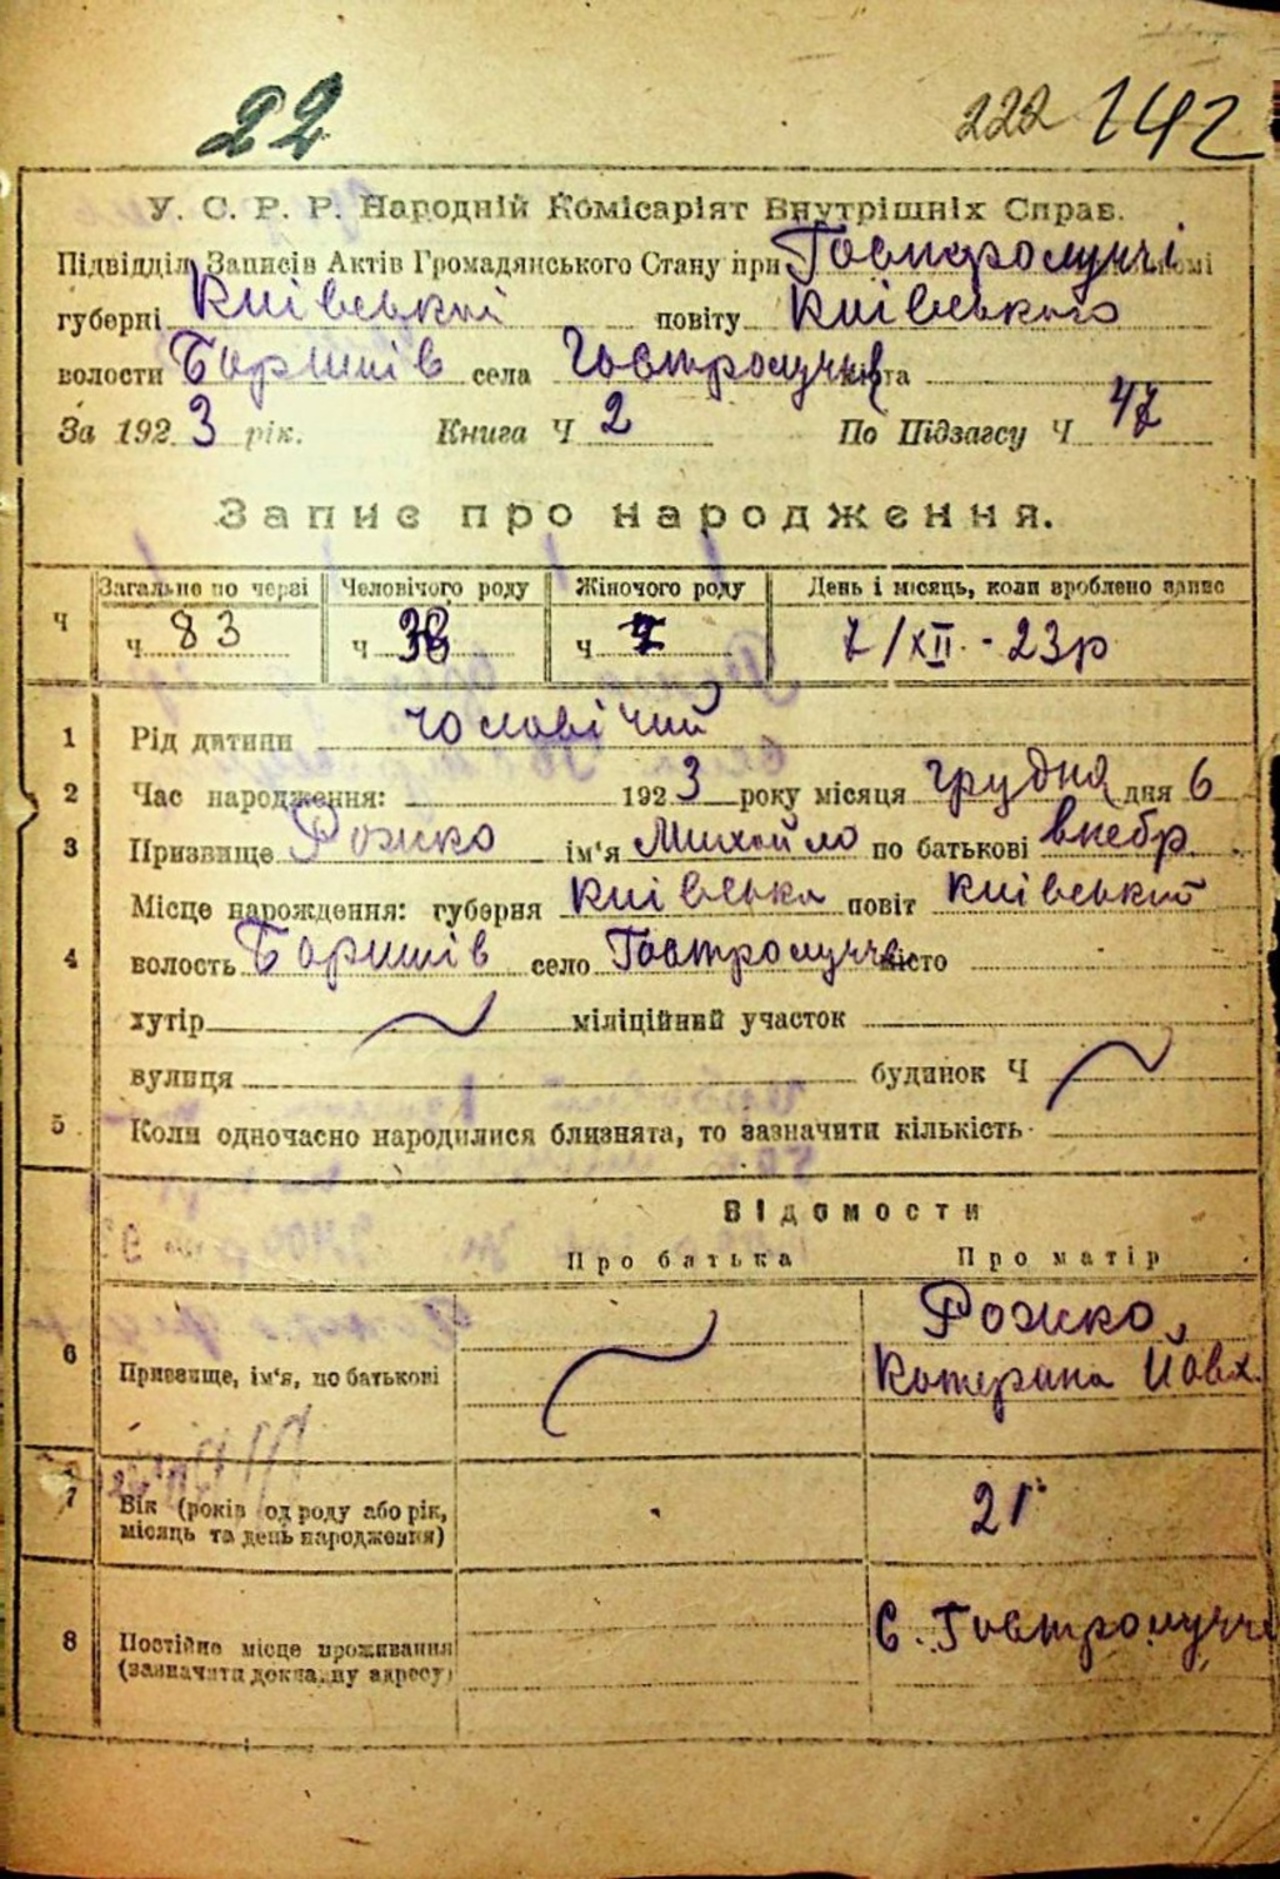 22 222 142
У. С. Р. Р. Народній Комісаріят Внутрішніх Справ.
Підвідділ Записів Актів Громадянського Стану при Гостролуччі
губерні Київській повіту Київського
волости Баришів села Гостролуччє міста
За 1923 рік. Книга Ч 2 По Підзагсу Ч 47
Запис про народження.
Ч Загально по черзі Человічого роду Жіночого роду День і місяць, коли зроблено запис
ч 83 ч 36 ч 7/XII - 23р
1 Рід дитини чоловічий
2 Час народження: 1923 року місяця грудня дня 6
3 Призвище Рожко ім'я Михайло по батькові внебр.
Місце нарождення: губерня Київська повіт Київський
4 волость Баришів село Гостролуччє місто
хутір міліційний участок
вулиця будинок Ч
5 Коли одночасно народилися близнята, то зазначити кількість
Відомости
Про батька Про матір
6 Призвище, ім'я, по батькові Рожко,
Катерина Йовх.
7 Вік (років од роду або рік, місяць та день народження) 21
8 Постійне місце проживання (зазначити докладну адресу) с. Гостролуччє